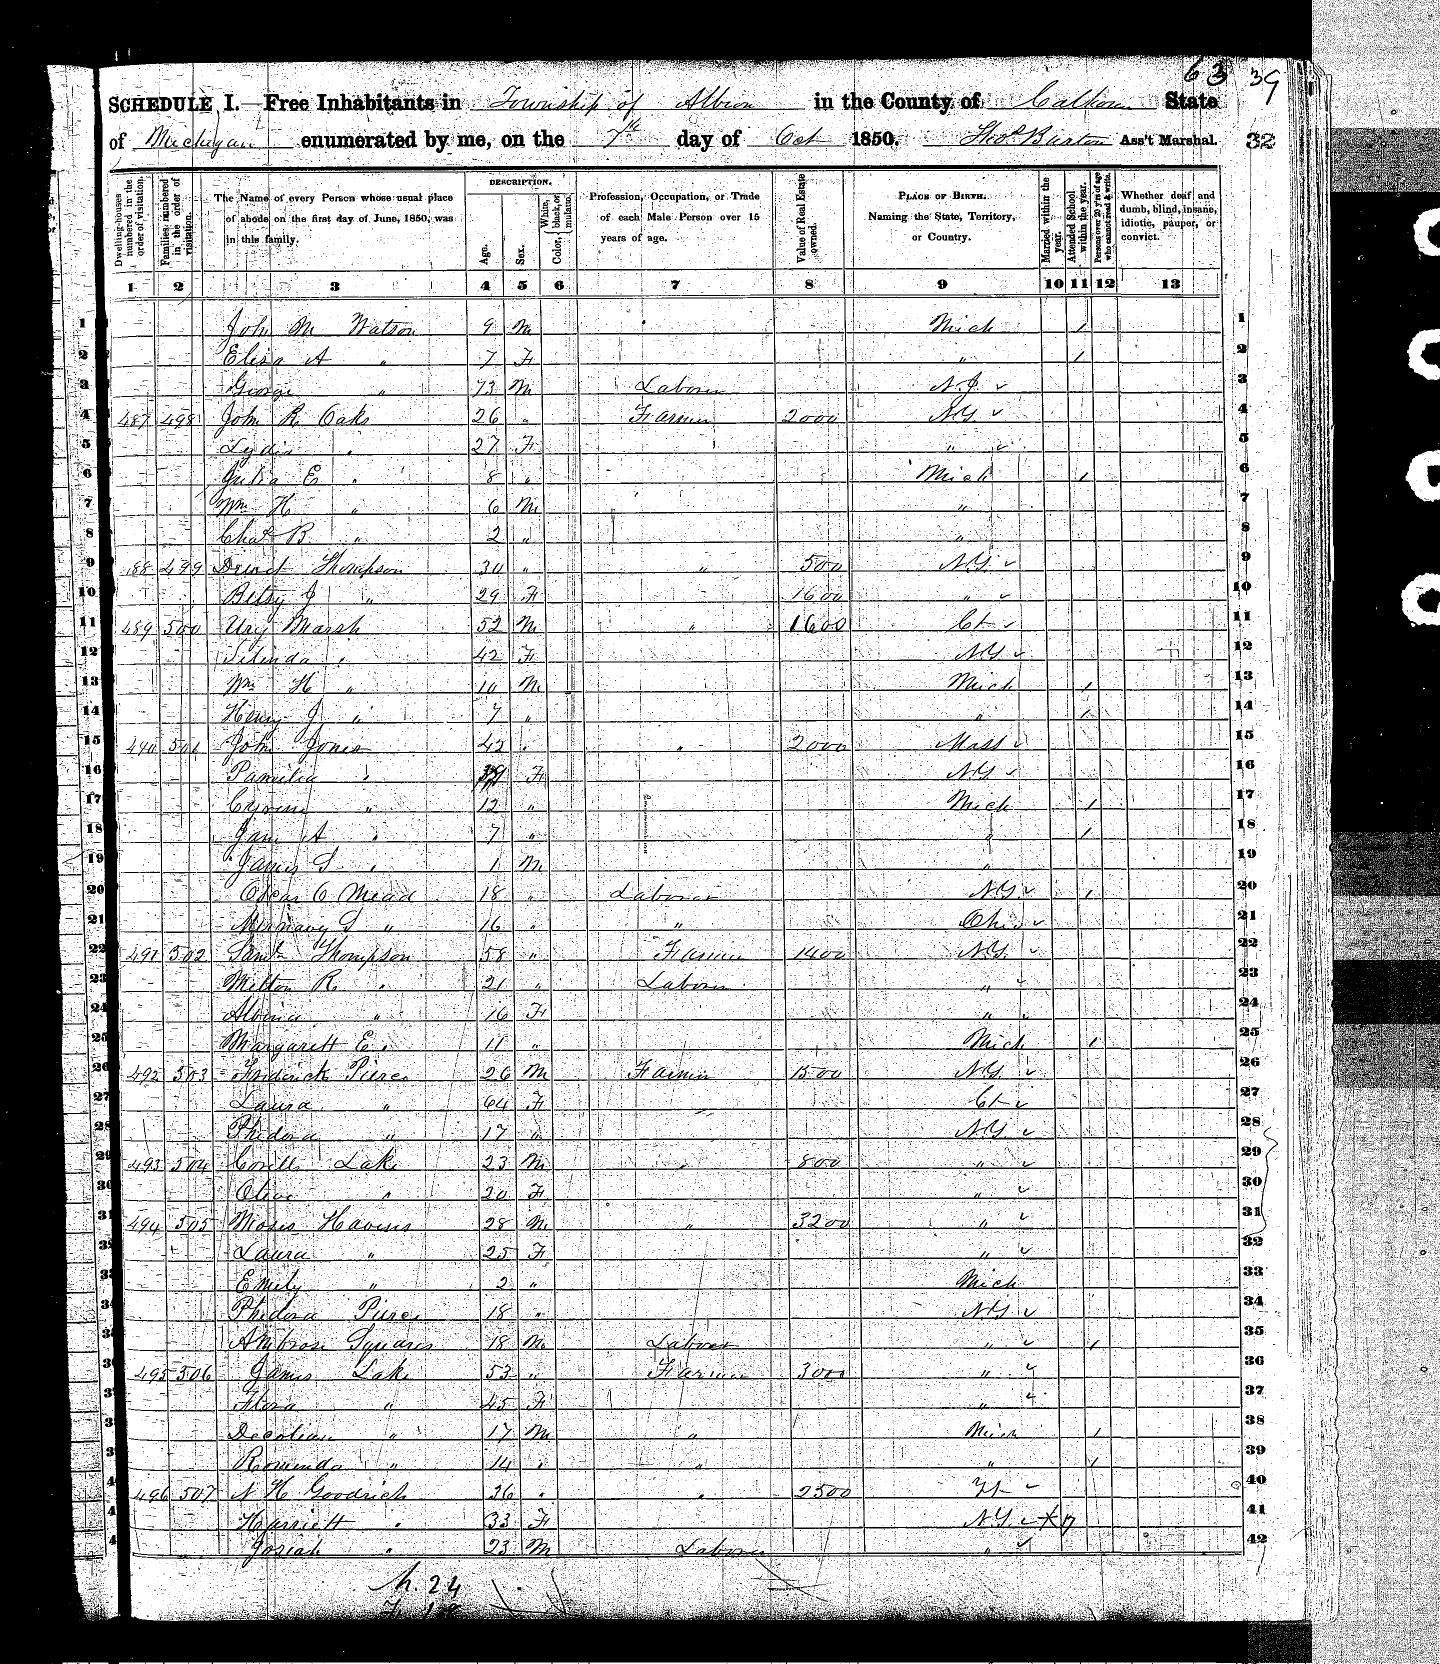 63 39
SCHEDULE I.—Free Inhabitants in Township of Albion in the County of Calhoun State
of Michigan enumerated by me, on the 7th day of Oct 1850. Thos Burton Ass't Marshal. 32
Dwelling-houses numbered in the order of visitation.
Families numbered in the order of visitation.
The Name of every Person whose usual place of abode on the first day of June, 1850, was in this family.
DESCRIPTION.
Age.
Sex.
Color, White, black, or mulatto.
Profession, Occupation, or Trade of each Male Person over 15 years of age.
Value of Real Estate owned.
PLACE OF BIRTH. Naming the State, Territory, or Country.
Married within the year.
Attended School within the year.
Persons over 20 y'rs of age who cannot read & write.
Whether deaf and dumb, blind, insane, idiotic, pauper, or convict.
1 2 3 4 5 6 7 8 9 10 11 12 13
1 John M Watson 9 M Mich / 1
2 Eliza A " 7 F " / 2
3 George " 73 M Laborer N.J. ✓ 3
4 487 498 John R Oaks 26 " Farmer 2000 N.Y. ✓ 4
5 Lydia " 27 F " ✓ 5
6 Julia E " 8 " Mich / 6
7 Wm H " 6 M " 7
8 Chas B " 2 " " 8
9 488 499 Thompson 30 " " 500 N.Y. ✓ 9
10 Betsy J " 29 F 1600 " ✓ 10
11 489 500 Ury Marsh 52 M " 1600 Ct ✓ 11
12 Selinda " 42 F N.Y. ✓ 12
13 Wm H " 10 M Mich / 13
14 Henry J " 7 " " / 14
15 490 501 John Jones 42 " " 2000 Mass ✓ 15
16 Pamilia " 39 F N.Y. ✓ 16
17 " 12 " Mich / 17
18 Jane A " 7 " " / 18
19 James S " 1 M " 19
20 Oscar O Mead 18 " Laborer N.Y. ✓ / 20
21 S " 16 " " Ohio ✓ 21
22 491 502 Saml Thompson 58 " Farmer 1400 N.Y. ✓ 22
23 Milton R " 21 " Laborer " ✓ 23
24 Albina " 16 F " ✓ 24
25 Margarett E " 11 " Mich / 25
26 492 503 Frederick Pierce 26 M Farmer 1500 N.Y. ✓ 26
27 Laura " 64 F Ct ✓ 27
28 Phidora " 17 " N.Y. ✓ 28
29 493 504 Lake 23 M " 800 " ✓ 29
30 Olive " 20 F " ✓ 30
31 494 505 Moses Havens 28 M " 3200 " ✓ 31
3 Laura " 25 F " ✓ 32
3 Emily " 2 " Mich 33
3 Phidora Pierce 18 " N.Y. ✓ 34
3 Ambrose Squares 18 M Laborer " ✓ / 35
3 495 506 James Lake 53 " Farmer 3000 " ✓ 36
3 Flora " 45 F " ✓ 37
3 " 17 M " Mich / 38
3 Rominda " 14 " " " / 39
4 496 507 N H Goodrich 36 " " 2500 Vt ✓ 40
4 Harriett " 33 F N.Y. ✓ 41
4 Josiah " 23 M Laborer " ✓ 42
M. 24